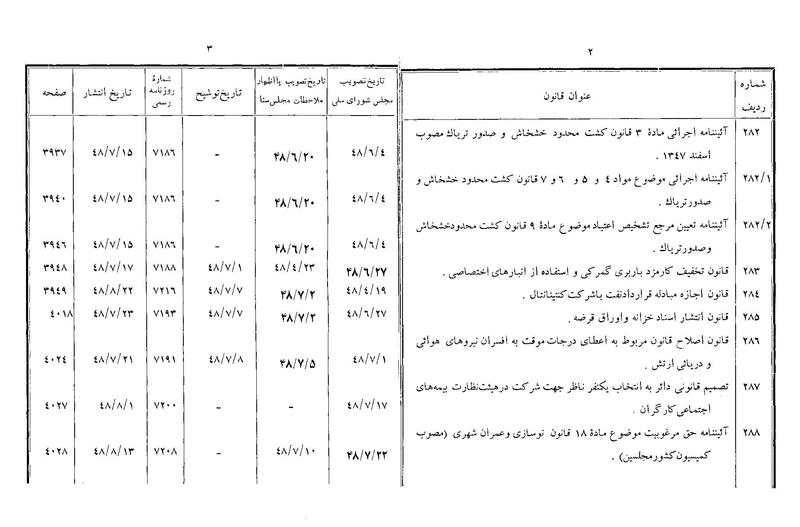 ۲
شماره ردیف
عنوان قانون
۲۸۲ آئیننامه اجرائی مادهٔ ۳ قانون کشت محدود خشخاش و صدور تریاک مصوب
اسفند ۱۳۴۷ .
۲۸۲/۱ آئیننامه اجرائی موضوع مواد ۴ و ۵ و ۶ و ۷ قانون کشت محدود خشخاش و
صدور تریاک .
۲۸۲/۲ آئیننامه تعیین مرجع تشخیص اعتیاد موضوع مادهٔ ۹ قانون کشت محدود خشخاش
و صدور تریاک .
۲۸۳ قانون تخفیف کارمزد باربری گمرکی و استفاده از انبارهای اختصاصی .
۲۸۴ قانون اجازه مبادله قرارداد نفت با شرکت کنتیننتال .
۲۸۵ قانون انتشار اسناد خزانه و اوراق قرضه .
۲۸۶ قانون اصلاح قانون مربوط به اعطای درجات موقت به افسران نیروهای هوائی
و دریائی ارتش .
۲۸۷ تصمیم قانونی دائر به انتخاب یکنفر ناظر جهت شرکت در هیئت نظارت بیمه‌های
اجتماعی کارگران .
۲۸۸ آئیننامه حق مرغوبیت موضوع مادهٔ ۱۸ قانون نوسازی و عمران شهری (مصوب
کمیسیون کشور مجلسین) .
۳
تاریخ تصویب مجلس شورای ملی
تاریخ تصویب یا اظهار ملاحظات مجلس سنا
تاریخ توشیح
شمارهٔ روزنامه رسمی
تاریخ انتشار
صفحه
۴۸/۶/۴ ۴۸/۶/۲۰ - ۷۱۸۶ ۴۸/۷/۱۵ ۳۹۳۷
۴۸/۶/۴ ۴۸/۶/۲۰ - ۷۱۸۶ ۴۸/۷/۱۵ ۳۹۴۰
۴۸/۶/۴ ۴۸/۶/۲۰ - ۷۱۸۶ ۴۸/۷/۱۵ ۳۹۴۶
۴۸/۶/۲۷ ۴۸/۴/۲۳ ۴۸/۷/۱ ۷۱۸۸ ۴۸/۷/۱۷ ۳۹۴۸
۴۸/۴/۱۹ ۴۸/۷/۲ ۴۸/۷/۷ ۷۲۱۶ ۴۸/۸/۲۲ ۳۹۴۹
۴۸/۶/۲۷ ۴۸/۷/۲ ۴۸/۷/۷ ۷۱۹۳ ۴۸/۷/۲۳ ۴۰۱۸
۴۸/۷/۱ ۴۸/۷/۵ ۴۸/۷/۸ ۷۱۹۱ ۴۸/۷/۲۱ ۴۰۲۴
۴۸/۷/۱۷ - - ۷۲۰۰ ۴۸/۸/۱ ۴۰۲۷
۴۸/۷/۲۲ ۴۸/۷/۱۰ - ۷۲۰۸ ۴۸/۸/۱۳ ۴۰۲۸